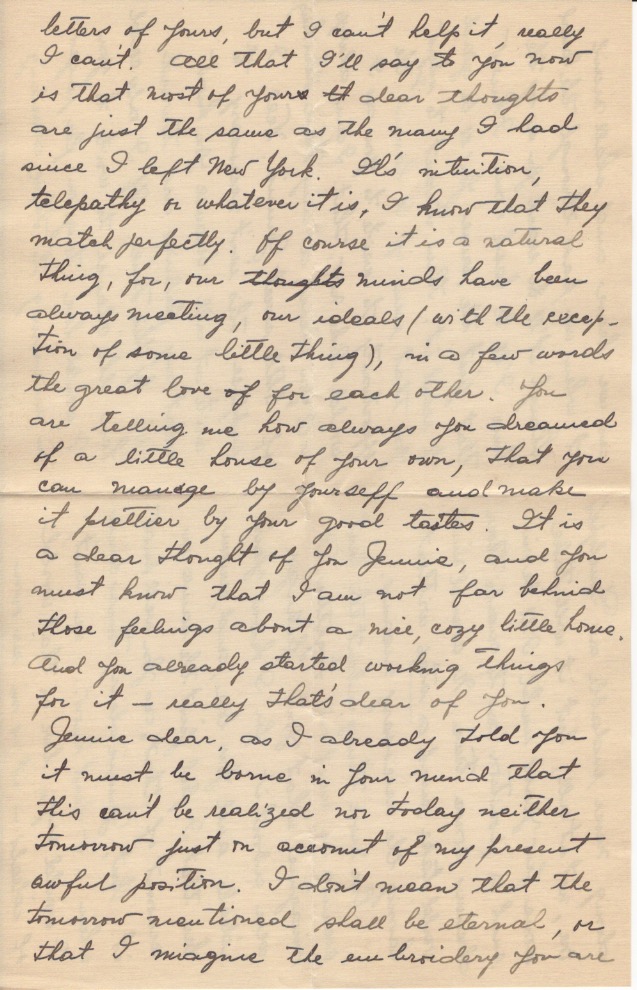 letters of yours, but I can't help it, really
I can't. All that I'll say to you now
is that most of yours dear thoughts
are just the same as the many I had
since I left New York. It's intuition,
telepathy or whatever it is, I know that they
match perfectly. Of course it is a natural
thing, for, our thoughts minds have been
always meeting, our ideals (with the excep-
tion of some little thing), in a few words
the great love of for each other. You
are telling me how always you dreamed
of a little house of your own, that you
can manage by yourseff and make
it prettier by your good tastes. It is
a dear thought of you Jennie, and you
must know that I am not far behind
those feelings about a nice, cozy little home.
And you already started working things
for it – really that's dear of you.
Jennie dear, as I already told you
it must be borne in your mind that
this can't be realized nor today neither
tomorrow just on account of my present
awful position. I don't mean that the
tomorrow mentioned shall be eternal, or
that I imagine the embroidery you are